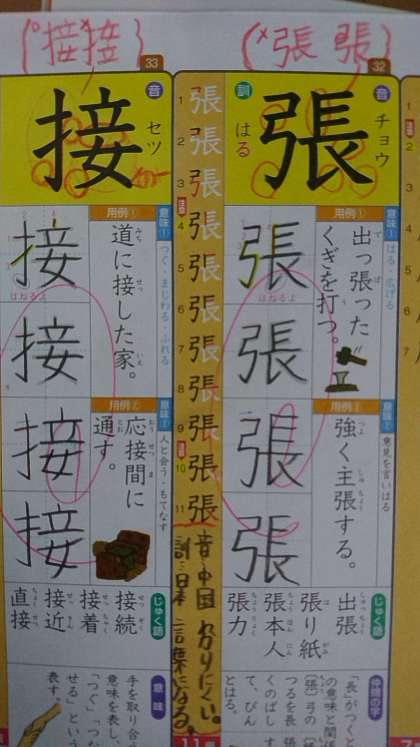 (×張 張)
32
張
音
チョウ
訓
はる
意味①
はる・広げる
用例①
出っ張った
くぎを打つ。
意味②
意見を言いはる
用例②
強く主張する。
張
張
張
張
じゅく語
出張
張り紙
張本人
張力
仲間の字
1 張
2 張
3 張
4 張
5 張
6 張
7 張
8 張
9 張
10 張
11 張
音:中国 わかりにくい。
訓:日本 言葉になる。
(°接 接)
33
接
音
セツ
意味①
つぐ・まじわる・ふれる
用例①
道に接した家。
意味②
人と会う・もてなす
用例②
応接間に
通す。
接
接
接
接
じゅく語
接続
接着
接近
直接
意味
手を取り合う
意味を表し、
「つぐ」「つな
せる」という
表す。